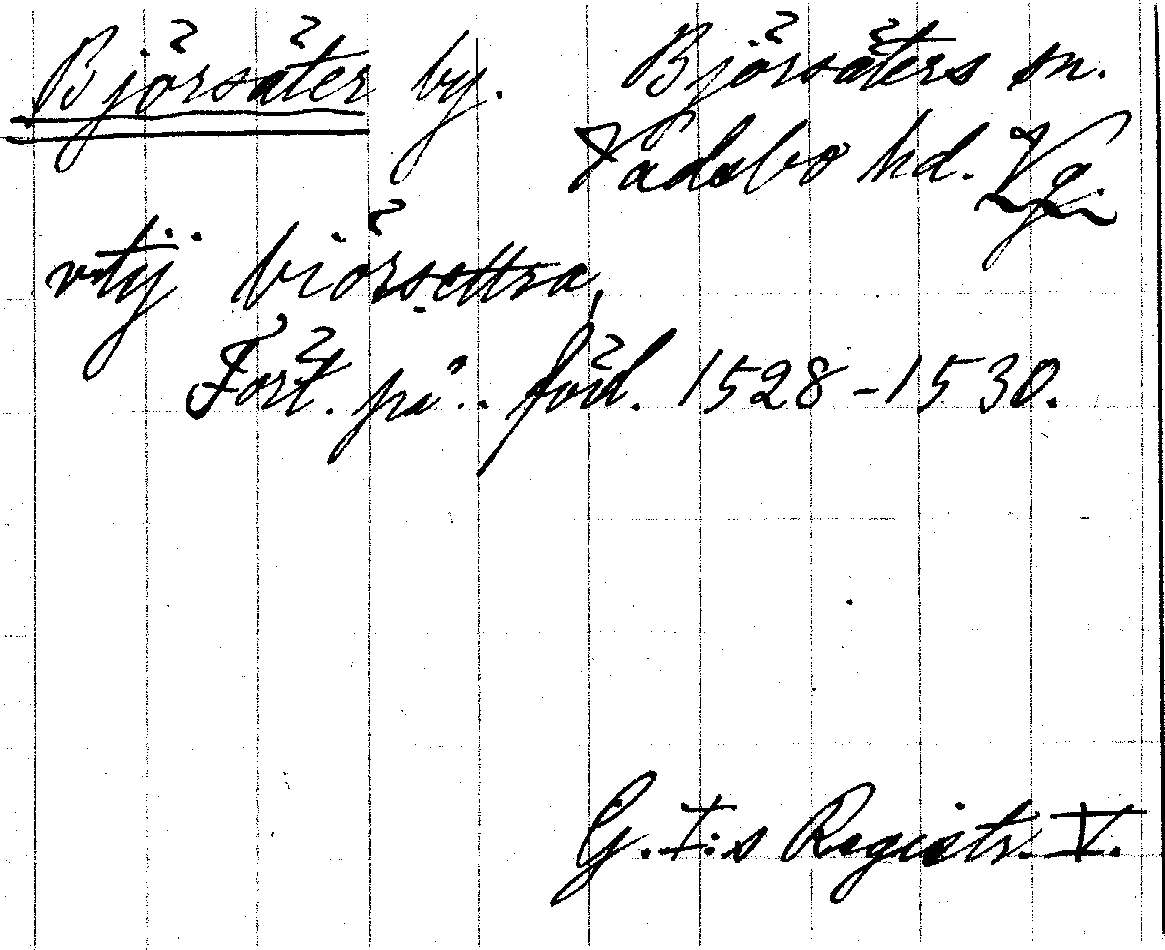 Björsäter by. Björsäters sn.
Vadsbo hd. Vg.
vtij biörsettra,
Fört. på .. förl. 1528-1530.
G. I:s Registr. V.